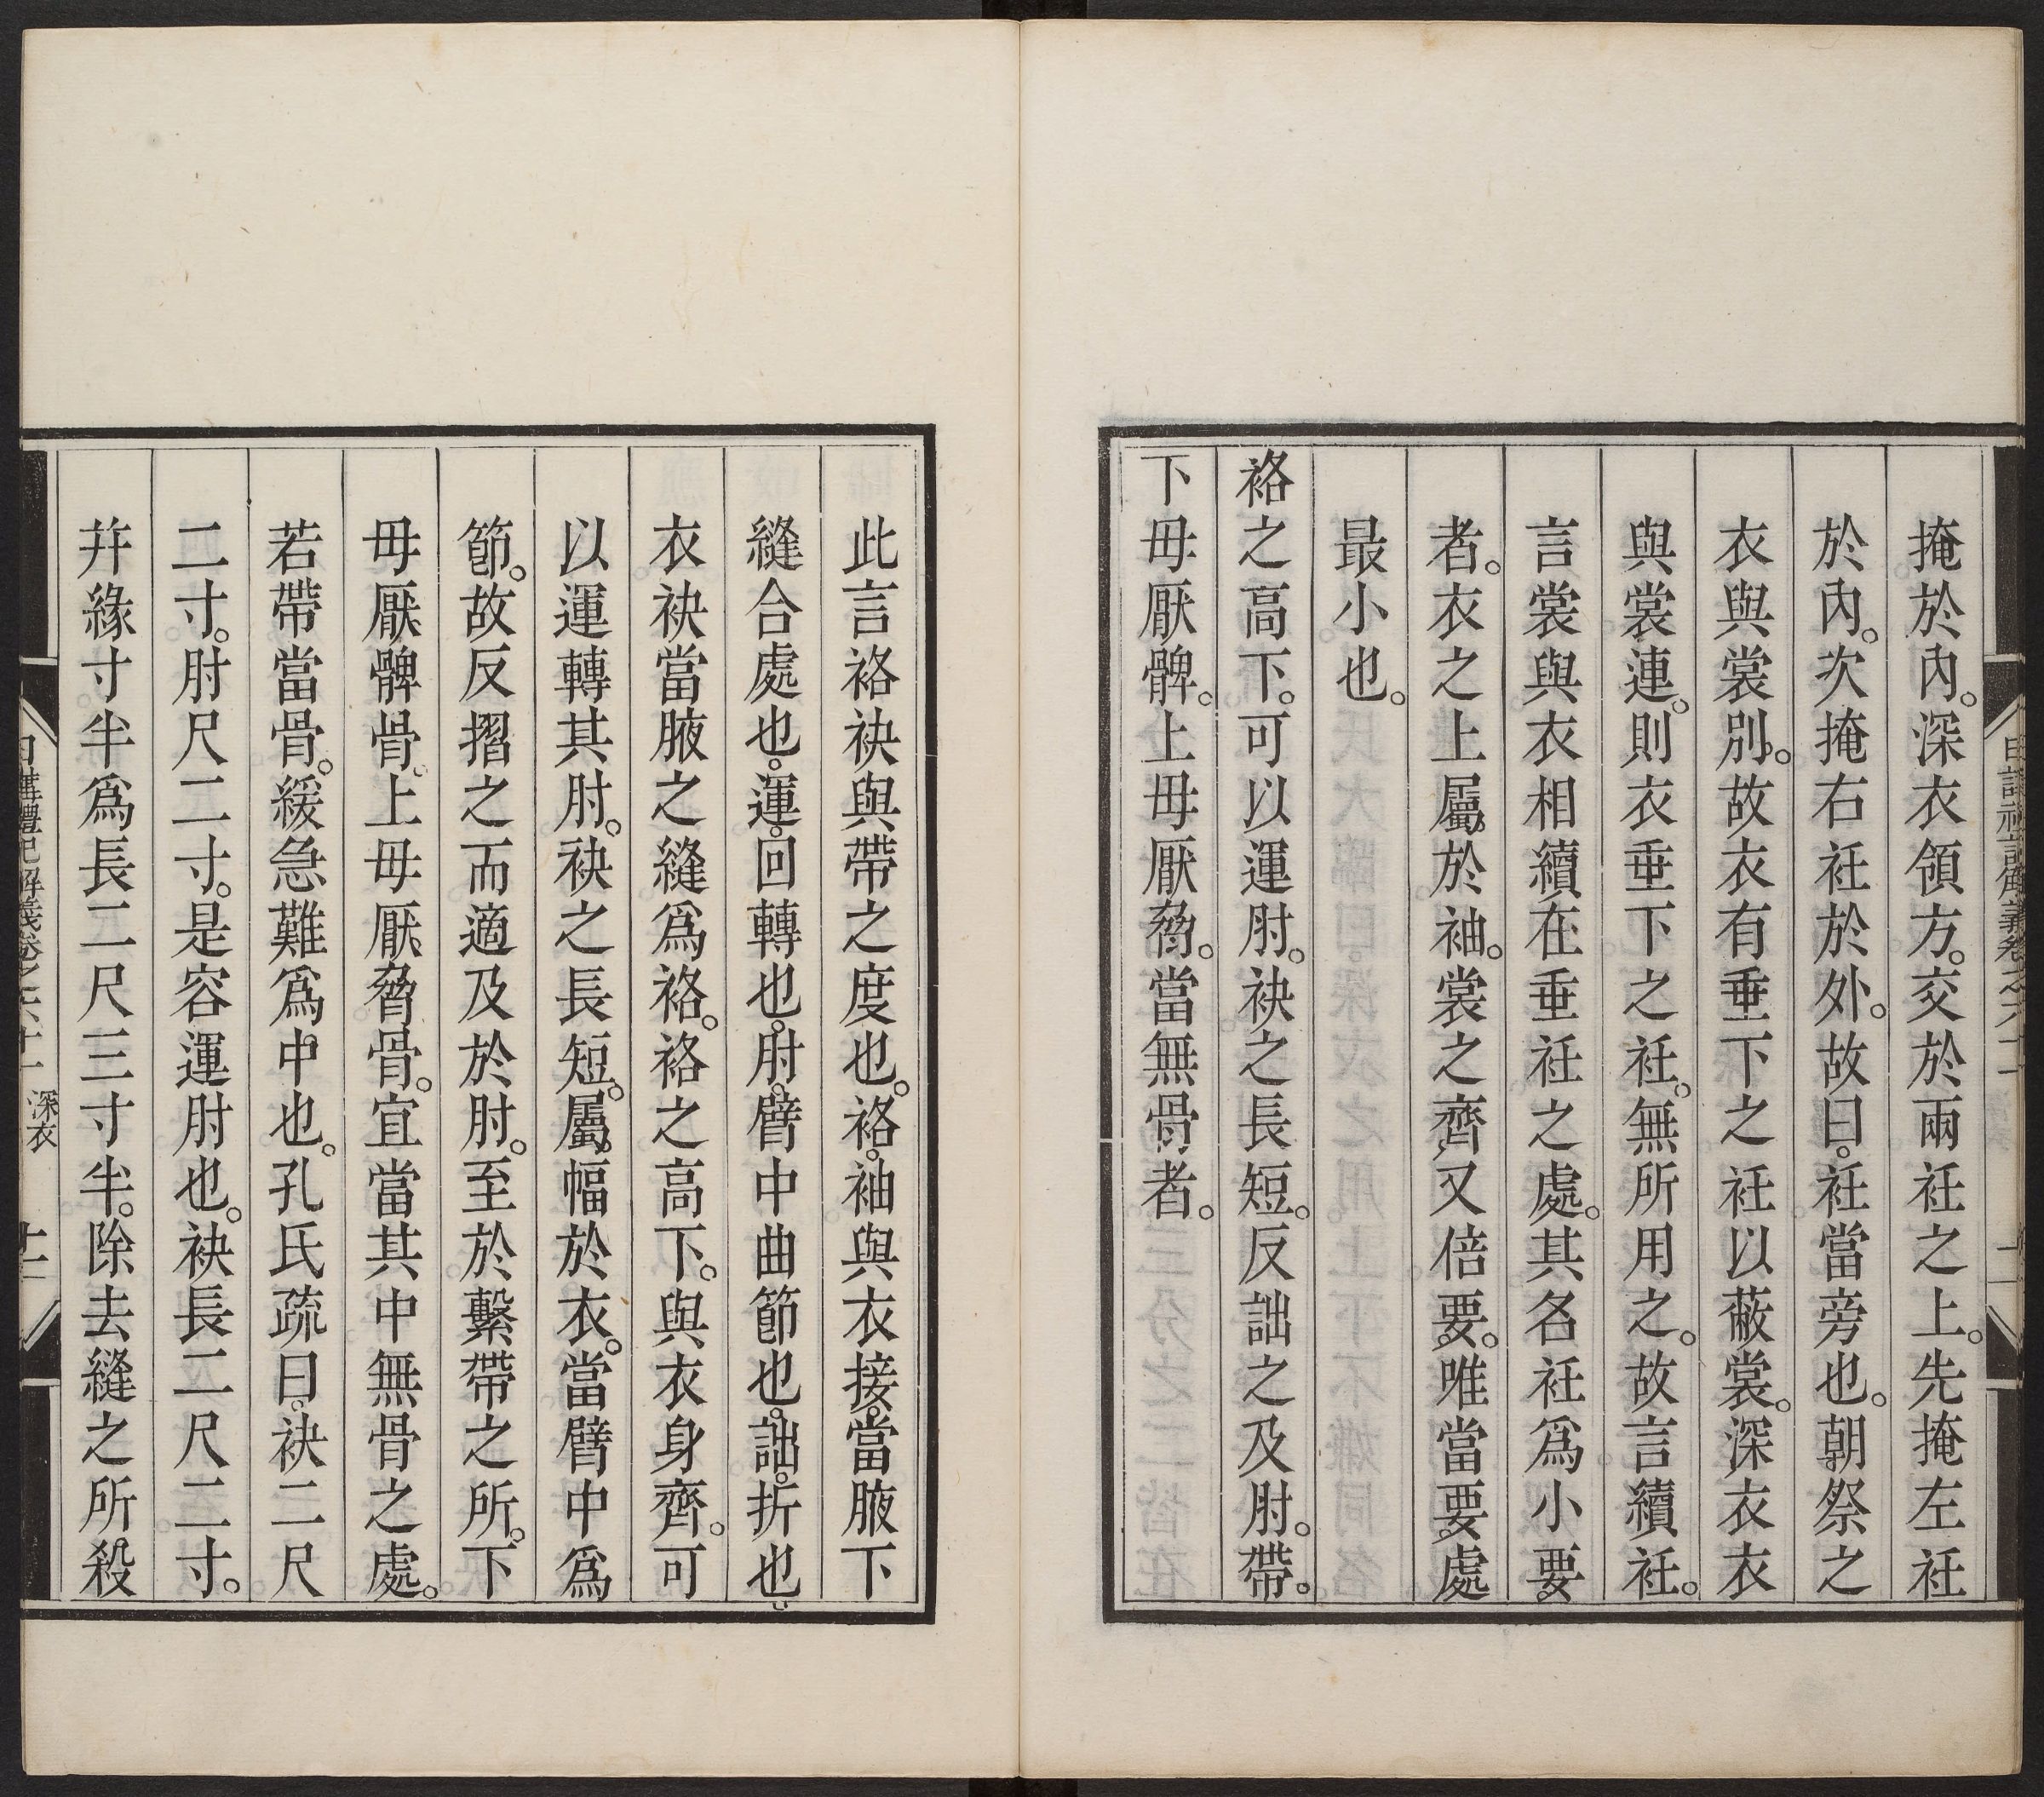 掩於內。深衣領方。交於兩衽之上。先掩左衽
於內。次掩右衽於外。故曰。衽當旁也。朝祭之
衣與裳別。故衣有垂下之衽以蔽裳。深衣衣
與裳連。則衣垂下之衽。無所用之。故言續衽。
言裳與衣相續在垂衽之處。其名衽爲小要
者。衣之上屬於袖。裳之齊又倍要。唯當要處
最小也。
袼之高下。可以運肘。袂之長短。反詘之及肘。帶。
下毋厭髀。上毋厭脅。當無骨者。
此言袼袂與帶之度也。袼。袖與衣接。當腋下
縫合處也。運。回轉也。肘。臂中曲節也。詘。折也。
衣袂當腋之縫爲袼。袼之高下。與衣身齊。可
以運轉其肘。袂之長短。屬幅於衣。當臂中爲
節。故反摺之而適及於肘。至於繫帶之所。下
毋厭髀骨。上毋厭脅骨。宜當其中無骨之處。
若帶當骨。緩急難爲中也。孔氏疏曰。袂二尺
二寸。肘尺二寸。是容運肘也。袂長二尺二寸。
幷緣寸半爲長二尺三寸半。除去縫之所殺
日講禮記解義卷之六十一 深衣 十二